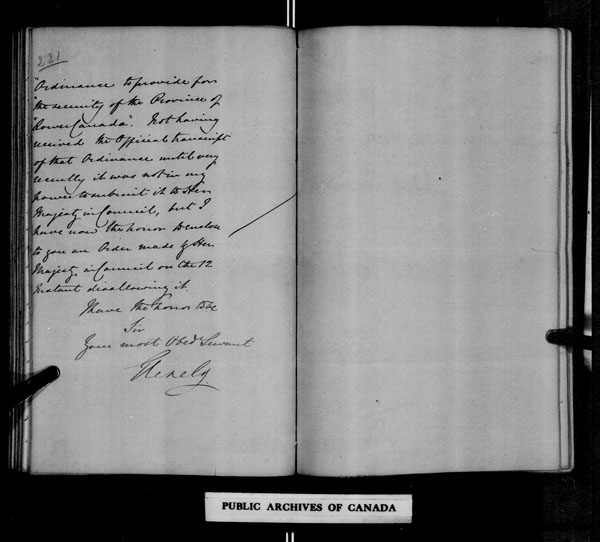 221
"Ordinance to provide for
"the security of the Province of
"Lower Canada". Not having
received the Official transcript
of that Ordinance until very
recently it was not in my
power to submit it to Her
Majesty in Council, but I
have now the honor to enclose
to you an Order made by Her
Majesty in Council on the 12
Instant disallowing it
I have the honor to be
Sir
Your most Obedt Servant
Glenelg
PUBLIC ARCHIVES OF CANADA